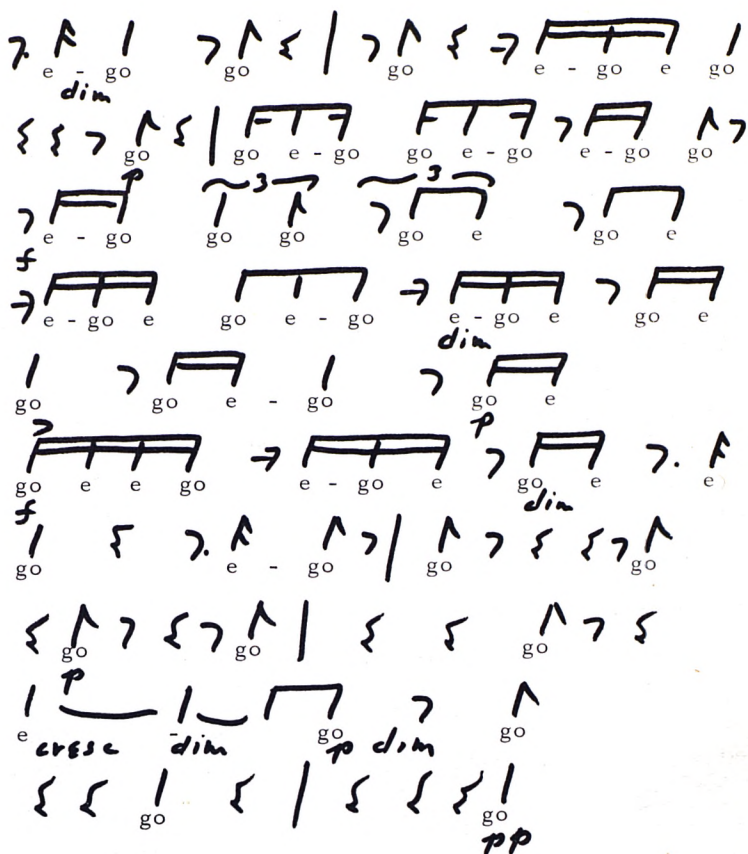 e - go go go e - go e go
dim
go go e - go go e - go e - go go
p
e - go 3 go go 3 go e go e
f
e - go e go e - go e - go e go e
dim
go go e - go go e
> p
go e e go e - go e go e e
f dim
go e - go go go
go go go
p
e go go
cresc dim p dim
go go
pp